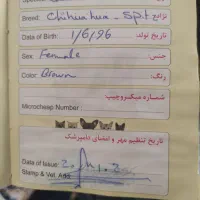 Breed: Chihuahua - Spit نژاد:
Date of Birth: 1/6/96 تاریخ تولد:
Sex: Female جنس:
Color: Brown رنگ:
شماره میکروچیپ
Microcheap Number
تاریخ تنظیم مهر و امضای دامپزشک
Date of Issue:
Stamp & Vet. Add: